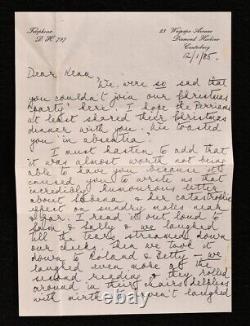 Telephone
D. H. 797
23 Waipapa Avenue
Diamond Harbour
Canterbury
/1/85.
Dear Rena,
We were so sad that
you couldn't join our Christmas
"party" here. I hope the Perrians
at least shared their Christmas
dinner with you. We toasted
you 'in absentia'!
I must hasten to add that
it was almost worth not being
able to have you because it
caused you to write us that
incredibly humourous letter
about & her catastrophic
effect on sundry males near
& far. I read it out loud to
John & Sally & we laughed
till the tears streamed down
our cheeks, then we took it
down to Roland & Betty & we
laughed even more at the
second reading & they rolled
around in their chairs helpless
with mirth. I haven't laughed